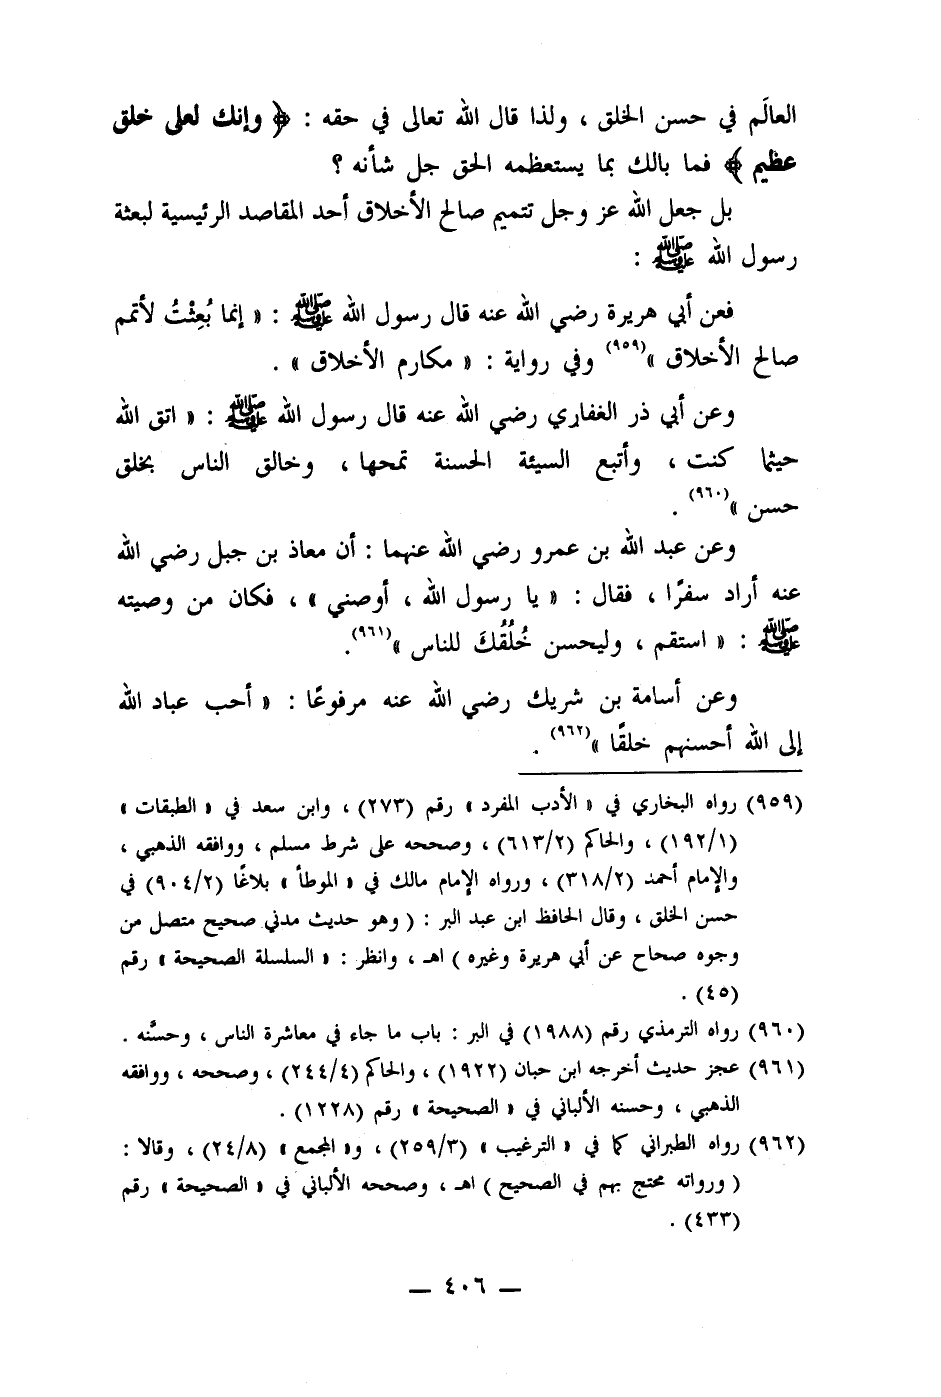 العالَم في حسن الخلق ، ولذا قال الله تعالى في حقه : ﴿ وإنك لعلى خلق
عظيم ﴾ فما بالك بما يستعظمه الحق جل شأنه ؟
بل جعل الله عز وجل تتميم صالح الأخلاق أحد المقاصد الرئيسية لبعثة
رسول الله ﷺ :
فعن أبي هريرة رضي الله عنه قال رسول الله ﷺ : « إنما بُعِثْتُ لأتمم
صالح الأخلاق »(٩٥٩) وفي رواية : « مكارم الأخلاق » .
وعن أبي ذر الغفاري رضي الله عنه قال رسول الله ﷺ : « اتق الله
حيثما كنت ، وأتبع السيئة الحسنة تمحها ، وخالق الناس بخلق
حسن »(٩٦٠) .
وعن عبد الله بن عمرو رضي الله عنهما : أن معاذ بن جبل رضي الله
عنه أراد سفرًا ، فقال : « يا رسول الله ، أوصني » ، فكان من وصيته
ﷺ : « استقم ، وليحسن خُلُقُكَ للناس »(٩٦١).
وعن أسامة بن شريك رضي الله عنه مرفوعًا : « أحب عباد الله
إلى الله أحسنهم خلقًا »(٩٦٢) .
(٩٥٩) رواه البخاري في « الأدب المفرد » رقم (٢٧٣) ، وابن سعد في « الطبقات »
(١٩٢/١) ، والحاكم (٦١٣/٢) ، وصححه على شرط مسلم ، ووافقه الذهبي ،
والإمام أحمد (٣١٨/٢) ، ورواه الإمام مالك في « الموطأ » بلاغًا (٩٠٤/٢) في
حسن الخلق ، وقال الحافظ ابن عبد البر : ( وهو حديث مدني صحيح متصل من
وجوه صحاح عن أبي هريرة وغيره ) اهـ ، وانظر : « السلسلة الصحيحة » رقم
(٤٥) .
(٩٦٠) رواه الترمذي رقم (١٩٨٨) في البر : باب ما جاء في معاشرة الناس ، وحسَّنه .
(٩٦١) عجز حديث أخرجه ابن حبان (١٩٢٢) ، والحاكم (٢٤٤/٤) ، وصححه ، ووافقه
الذهبي ، وحسنه الألباني في « الصحيحة » رقم (١٢٢٨) .
(٩٦٢) رواه الطبراني كما في « الترغيب » (٢٥٩/٣) ، و« المجمع » (٢٤/٨) ، وقالا :
( ورواته محتج بهم في الصحيح ) اهـ ، وصححه الألباني في « الصحيحة » رقم
(٤٣٣) .
— ٤٠٦ —